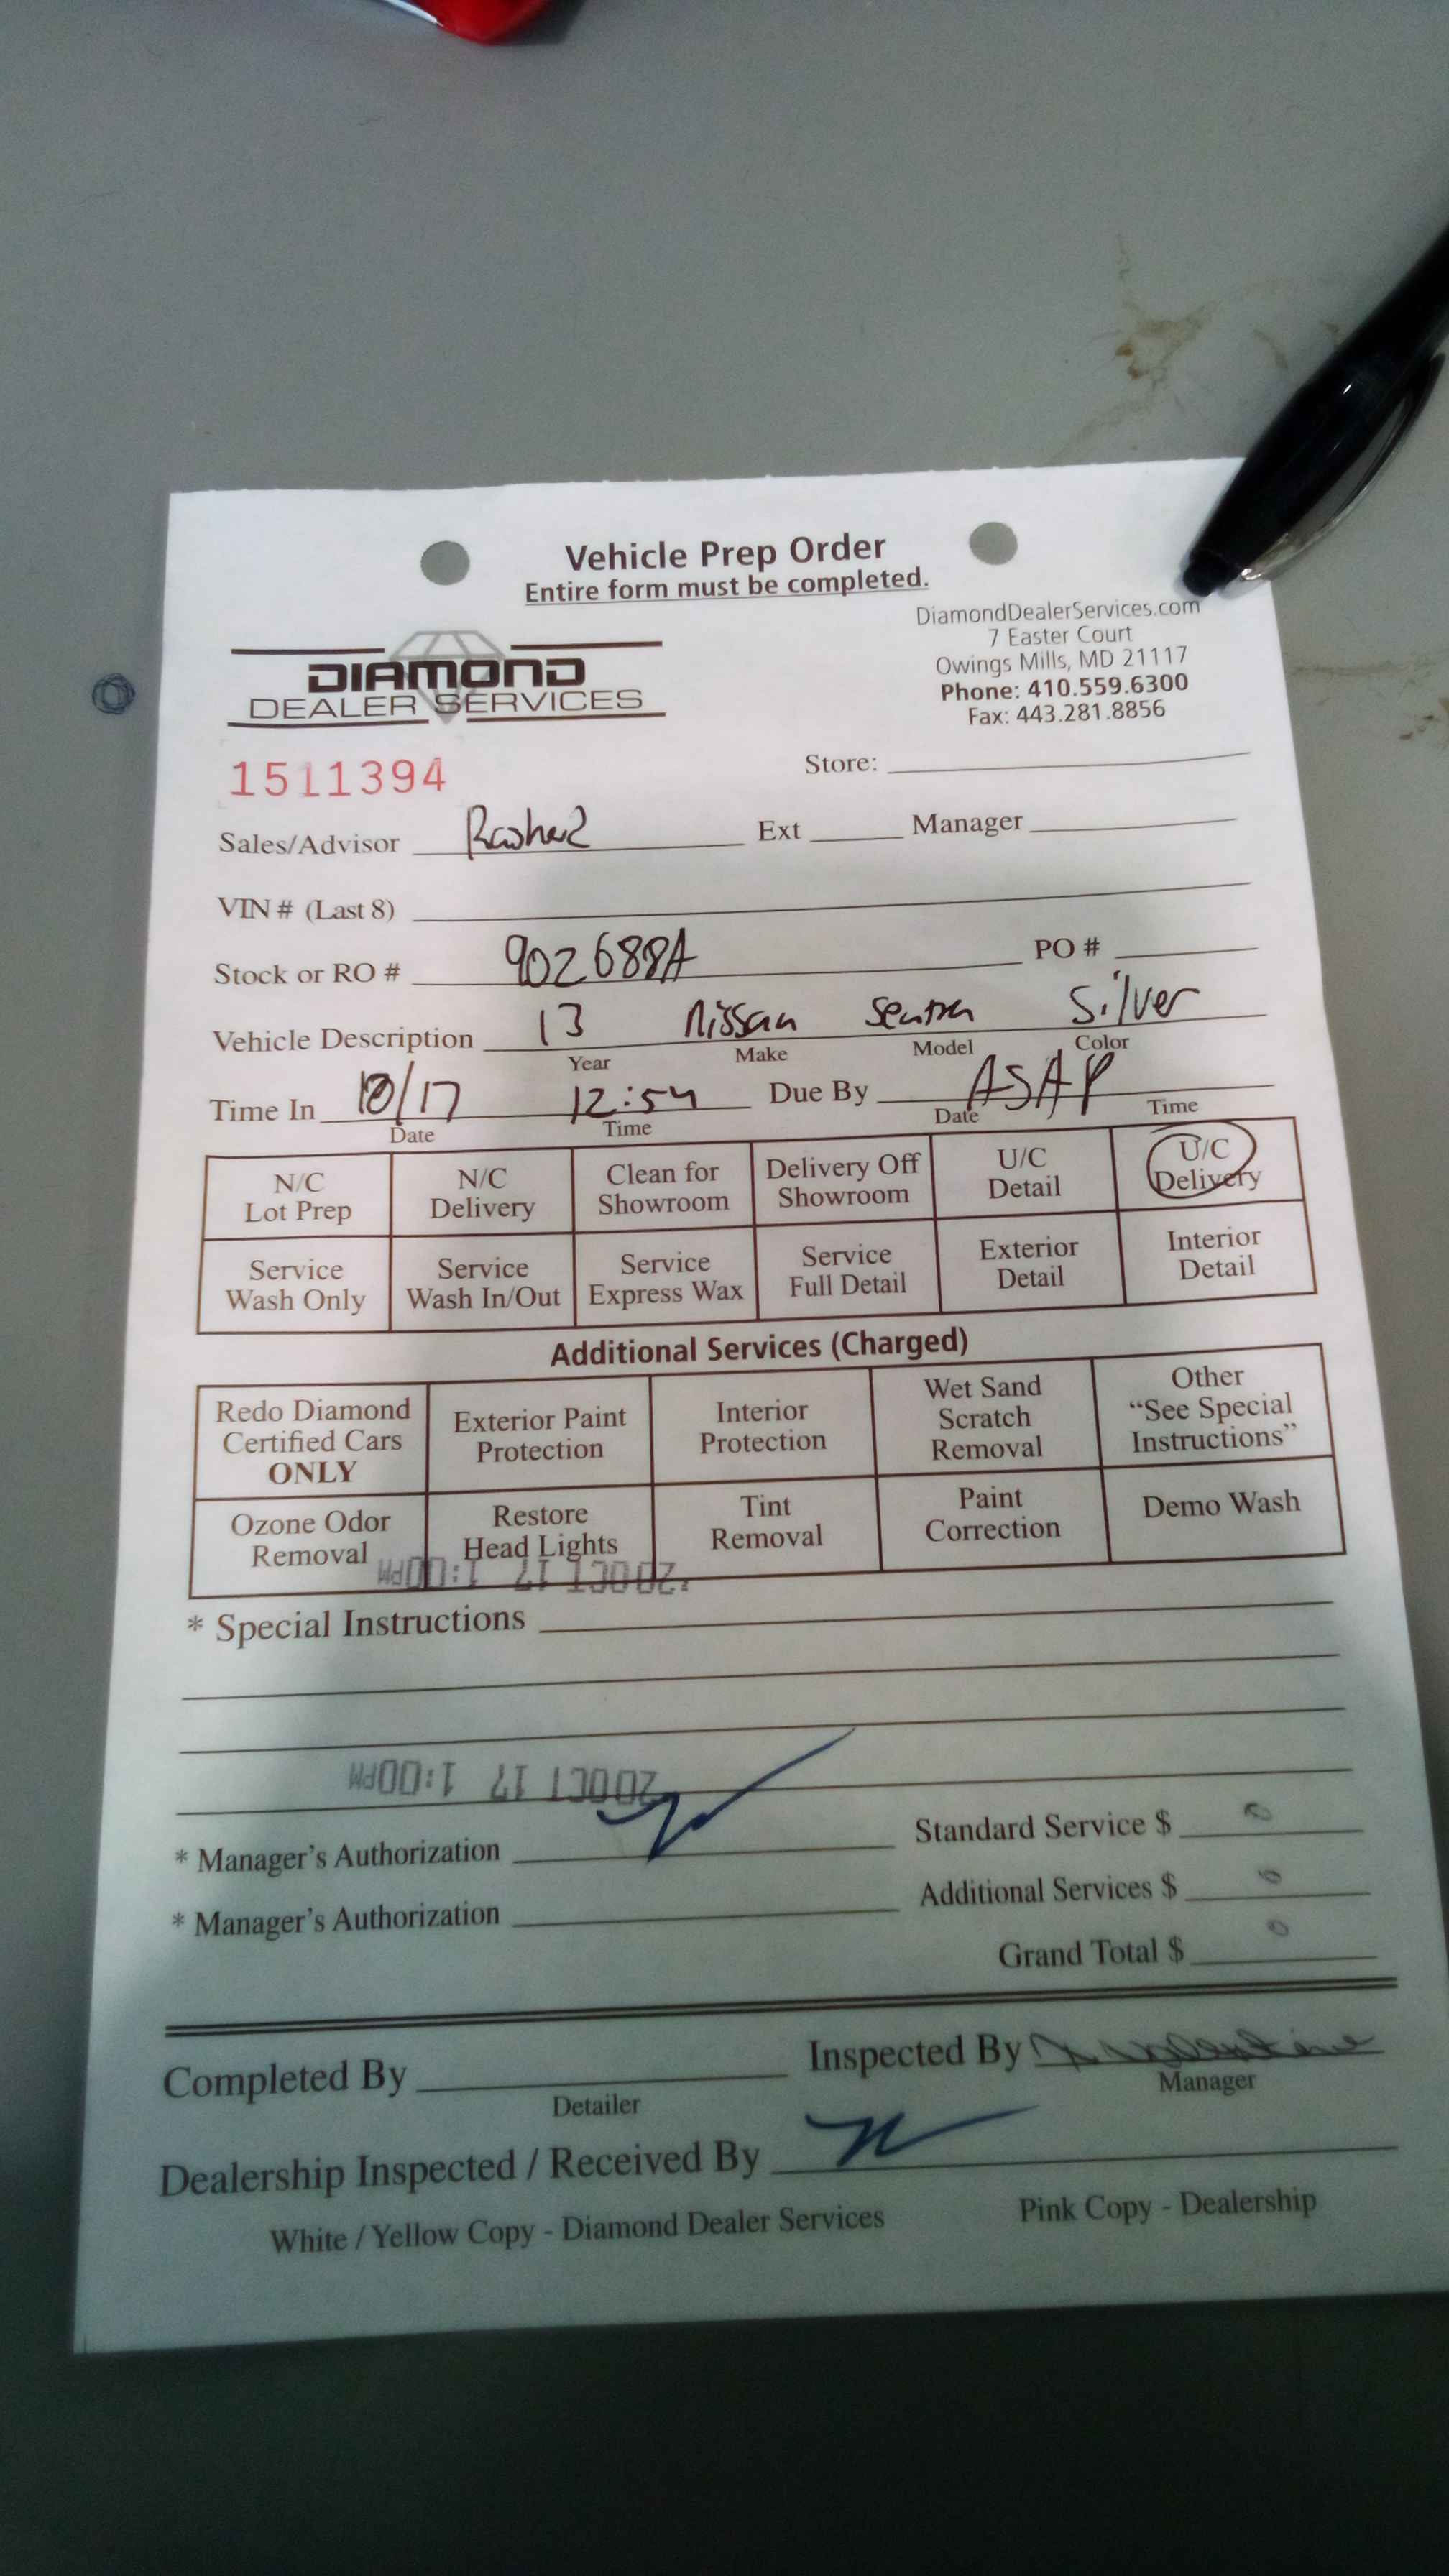 Vehicle Prep Order
Entire form must be completed.
DiamondDealerServices.com
7 Easter Court
Owings Mills, MD 21117
Phone: 410.559.6300
Fax: 443.281.8856
DIAMOND
DEALER SERVICES
1511394
Store:
Sales/Advisor Ext Manager
VIN # (Last 8)
Stock or RO # 902688A PO #
Vehicle Description 13 Nissan Sentra Silver
Year Make Model Color
Time In 10/17 12:54 Due By ASAP
Date Time Date Time
N/C Lot Prep N/C Delivery Clean for Showroom Delivery Off Showroom U/C Detail U/C Delivery
Service Wash Only Service Wash In/Out Service Express Wax Service Full Detail Exterior Detail Interior Detail
Additional Services (Charged)
Redo Diamond Certified Cars ONLY Exterior Paint Protection Interior Protection Wet Sand Scratch Removal Other “See Special Instructions”
Ozone Odor Removal Restore Head Lights Tint Removal Paint Correction Demo Wash
20OCT 17 1:00PM
* Special Instructions
20OCT 17 1:00PM
* Manager's Authorization Standard Service $ 0
* Manager's Authorization Additional Services $ 0
Grand Total $ 0
Completed By Inspected By
Detailer Manager
Dealership Inspected / Received By
White / Yellow Copy - Diamond Dealer Services Pink Copy - Dealership